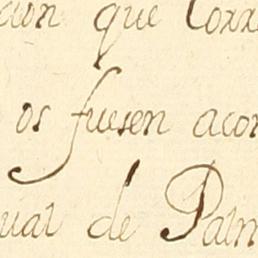 cion que Corre
os fuesen acor
ual de Palm